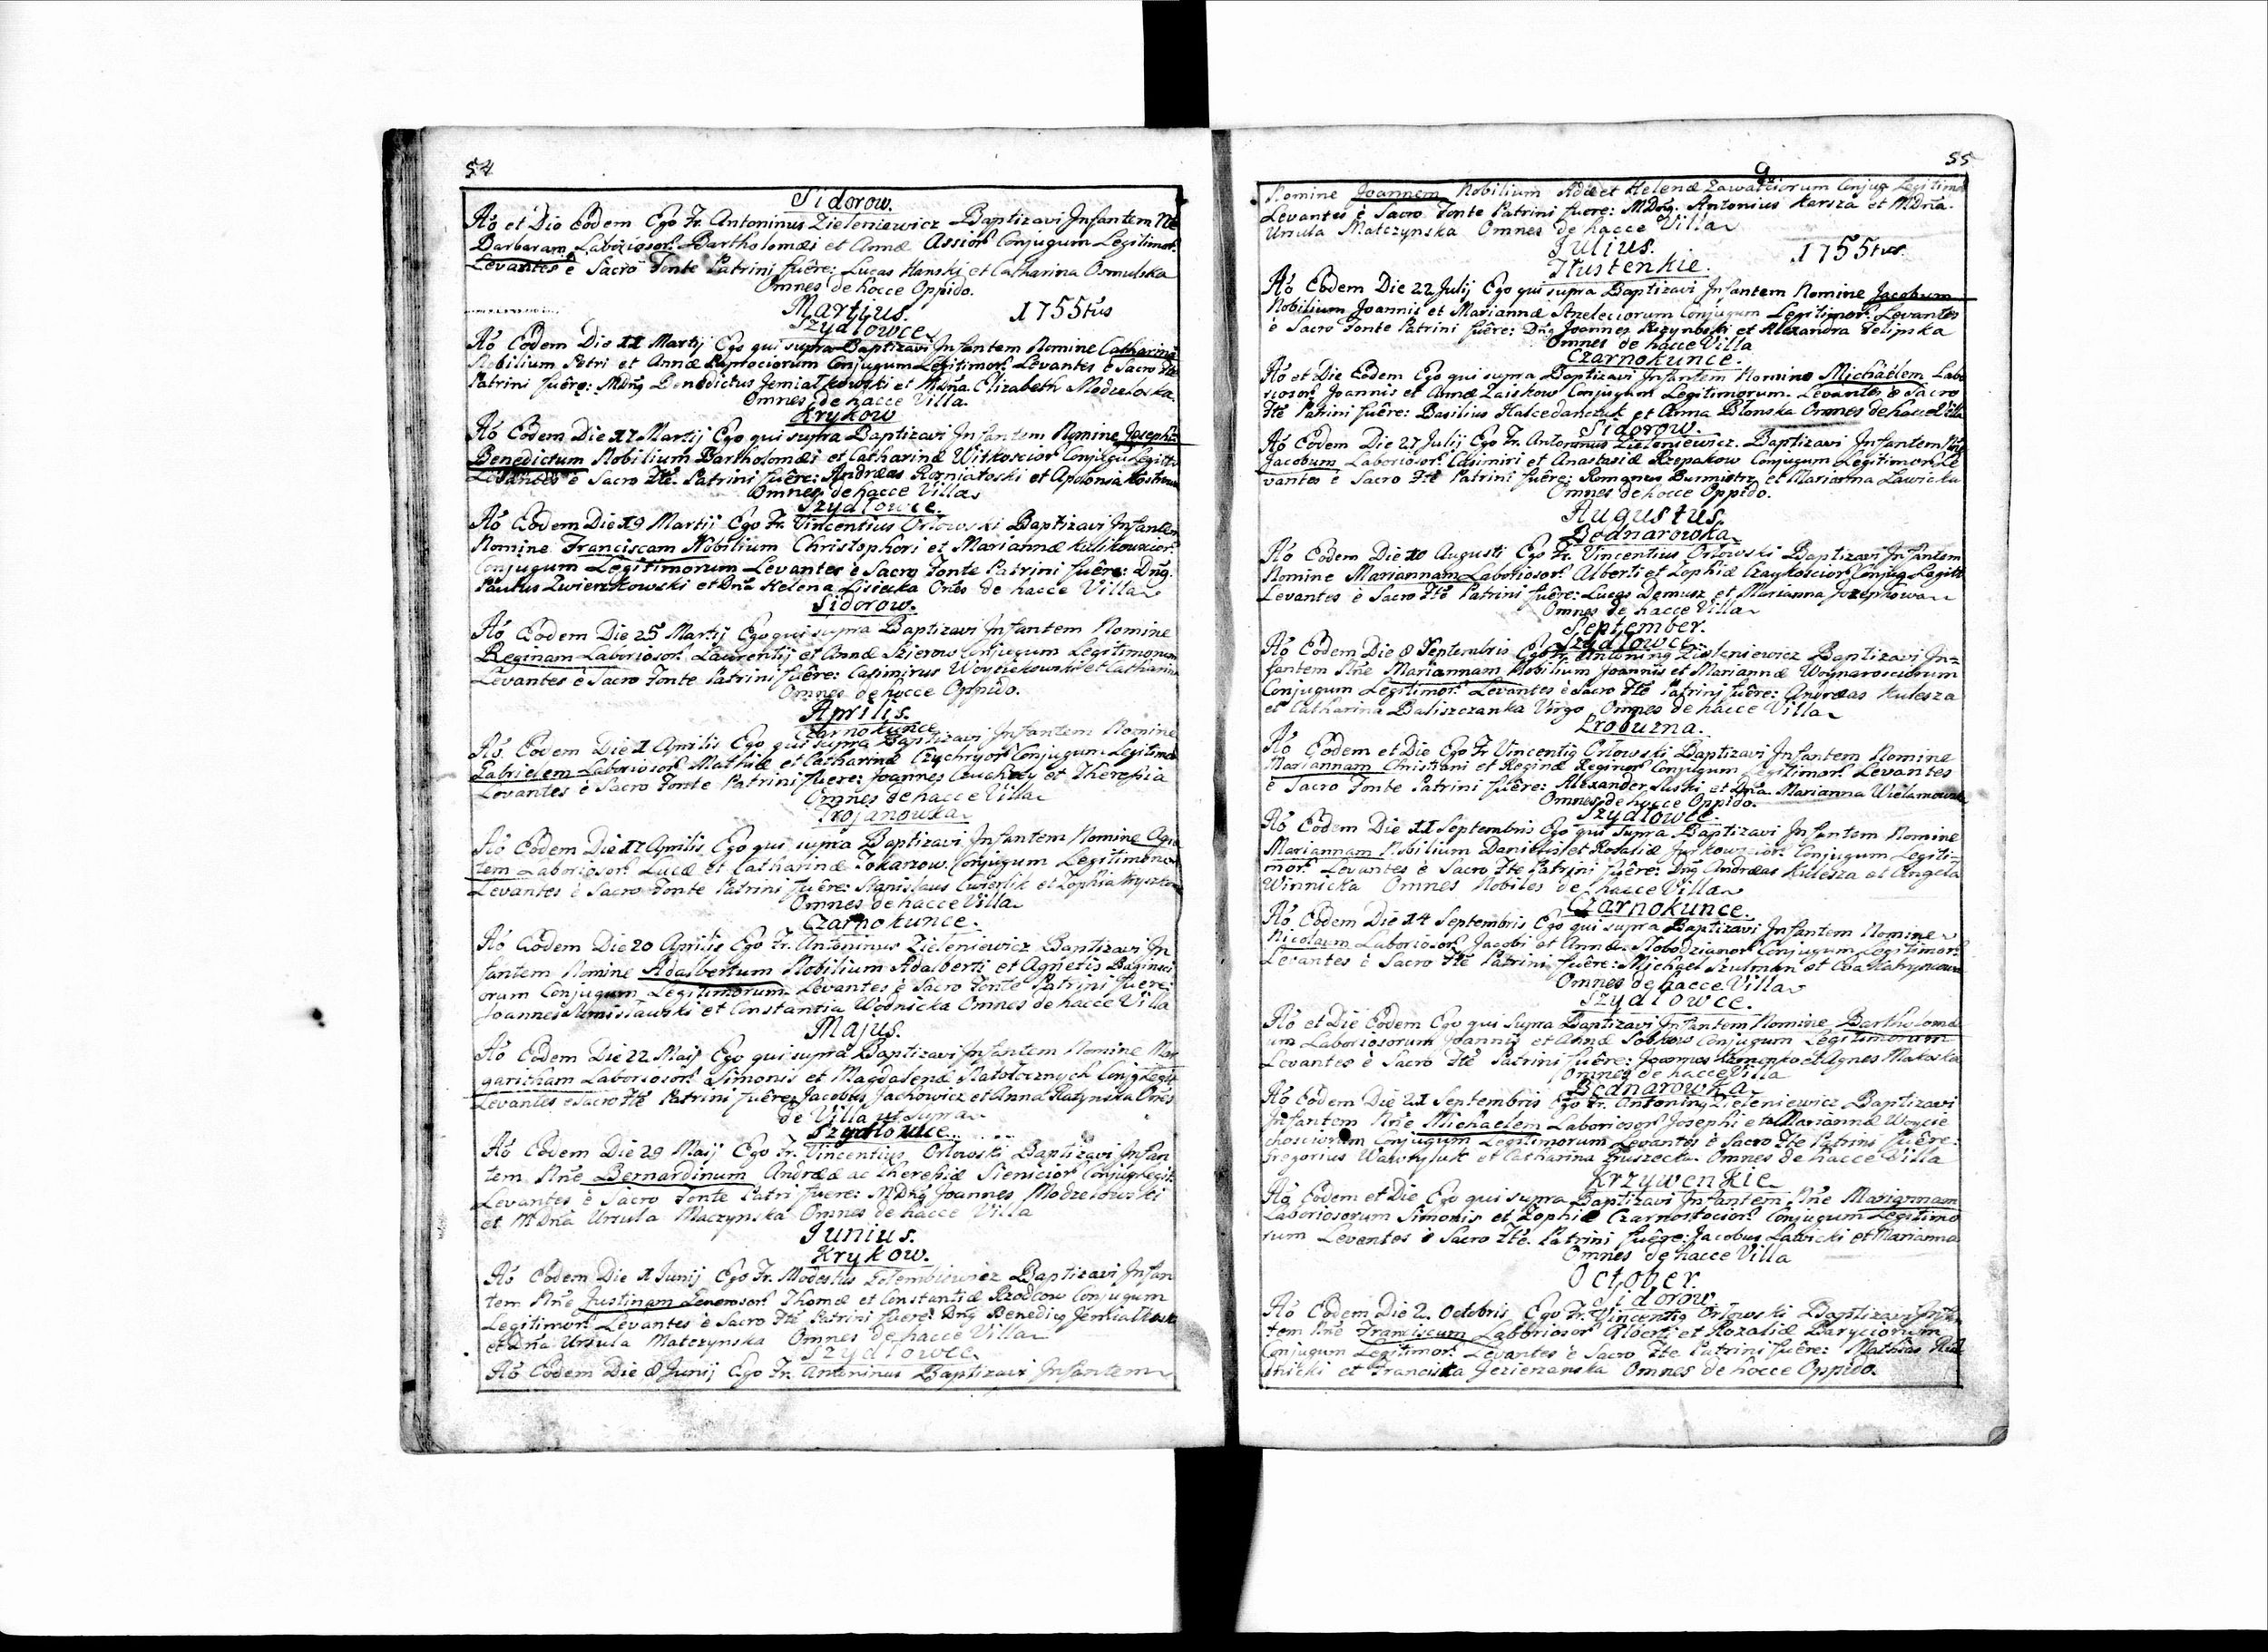 54
Sidorow.
Aô et Die Eodem Ego Fr. Antoninus Zieleniewicz Baptizavi Infantem Nê
Barbaram Laboriosor. Bartholomæi et Annæ Conjugum Legitimor.
Levantes è Sacro Fonte Patrini fuêre: Lucas Hanski et Catharina Osmulska
Omnes de hocce Oppido.
Martius. 1755tus
Szydłowce
Aô Eodem Die 11 Martij Ego qui supra Baptizavi Infantem Nomine Catharinã
Nobilium Petri et Annæ Conjugum Legitimor. Levantes è Sacro Fte
Patrini fuêre: MDnq Benedictus Jemiałkowski et MDña Elizabeth Modzeloska
Omnes de hacce Villa.
Krykow
Aô Eodem Die 17 Martij Ego qui supra Baptizavi Infantem Nomine Josephũ
Benedictum Nobilium Bartholomæi et Catharinæ Witkoscior Conjugũ
Levantes è Sacro Fte Patrini fuêre: Andræas et Apolonia
Omnes de hacce Villa
Szydłowce.
Aô Eodem Die 19 Martij Ego Fr. Vincentius Orłowski Baptizavi Infantem
Nomine Franciscam Nobilium Christophori et Mariannæ Kulikowscior.
Conjugum Legitimorum Levantes è Sacro Fonte Patrini fuêre: Dnq.
Paulus Zwierzkowski et Dña Helena Oñes de hacce Villa
Sidorow.
Aô Eodem Die 25 Martij Ego qui supra Baptizavi Infantem Nomine
Reginam Laboriosor. Laurentij et Annæ Conjugum Legitimorum
Levantes è Sacro Fonte Patrini fuêre: Casimirus et Catharina
Omnes de hocce Oppido.
Aprilis.
Czarnokunce
Aô Eodem Die 1 Aprilis Ego qui supra Baptizavi Infantem Nomine
Gabrielem Laboriosor. Mathiæ et Catharinæ Conjugum Legitimor
Levantes è Sacro Fonte Patrini fuere: Joannes et Theresia
Omnes de hacce Villa
Trojanowka
Aô Eodem Die 17 Aprilis Ego qui supra Baptizavi Infantem Nomine Agne
tem Laboriosor. Lucæ et Catharinæ Tokarzow Conjugum Legitimoru
Levantes è Sacro Fonte Patrini fuêre: Stanislaus Cwierlik et Zophia
Omnes de hacce Villa
Czarnokunce.
Aô Eodem Die 20 Aprilis Ego Fr. Antoninus Zieleniewicz Baptizavi In
fantem Nomine Adalbertum Nobilium Adalberti et Agnetis Baginsci
orum Conjugum Legitimorum Levantes è Sacro Fonte Patrini fuere:
Joannes et Constantia Wodnicka Omnes de hacce Villa
Majus.
Aô Eodem Die 22 Maij Ego qui supra Baptizavi Infantem Nomine Mar
garitham Laboriosor. Simonis et Magdalenæ Conjq Legit
Levantes è Sacro Fte Patrini fuêre: Jacobus Jachowicz et Anna Ratynska Omes
de Villa ut supra
Szydłowce
Aô Eodem Die 29 Maij Ego Fr. Vincentius Orłowski Baptizavi Infan
tem Nñe Bernardinum Andræa ac Theresiæ Sienicior Conjug Legit.
Levantes è Sacro Fonte Patri fuere: MDnq Joannes Modzelowski
et MDña Ursula Maczynska Omnes de hacce Villa
Junius.
Krykow.
Aô Eodem Die 1 Junij Ego Fr. Modestus Gołembiewicz Baptizavi Infan
tem Nñe Justinam Thomæ et Constantiæ Conjugum
Legitimor. Levantes è Sacro Fte Patrini fuere: Dnq Benedicq
et Dña Ursula Matczynska Omnes de hacce Villa
Szydłowce
Aô Eodem Die 8 Junij Ego Fr. Antoninus Baptizavi Infantem
55
9
Nomine Joannem Nobilium Adæ et Helenæ Conjug Legitimor
Levantes è Sacro Fonte Patrini fuere: MDnq. Antonius Karsza et MDña.
Ursula Matczynska Omnes de hacce Villa
Julius. 1755tus.
Husienkie.
Aô Eodem Die 22 Julij Ego qui supra Baptizavi Infantem Nomine Jacobum
Nobilium Joannis et Mariannæ Strzeleciorum Conjugum Legitimor. Levantes
è Sacro Fonte Patrini fuêre: Dnq Joannes et Alexandra Felinska
Omnes de hacce Villa
Czarnokunce.
Aô et Die Eodem Ego qui supra Baptizavi Infantem Nomine Michaëlem Labo
riosor. Joannis et Annæ Zaiskow Conjugum Legitimorum. Levantes è Sacro
Fte Patrini fuêre: Basilius et Anna Błonska Omnes de hacce Villa
Sidorow.
Aô Eodem Die 27 Julij Ego Fr. Antoninus Zieleniewicz. Baptizavi Infantem Nñe
Jacobum Laboriosor. Casimiri et Anastasiæ Rzepakow Conjugum Legitimor. Le
vantes è Sacro Fte Patrini fuêre: Romanus Burmistrz et Marianna Ławicka
Omnes de hocce Oppido.
Augustus.
Bednarowka
Aô Eodem Die 10 Augusti Ego Fr. Vincentius Orłowski Baptizavi Infantem
Nomine Mariannam Laboriosor. Alberti et Zophiæ Czaykoscior Conjug Legitt.
Levantes è Sacro Fte Patrini fuêre: Lucas Demusz et Marianna Jozephowa
Omnes de hacce Villa
September.
Szydłowce
Aô Eodem Die 8 Septembris Ego Fr. Antoninq Zieleniewicz Baptizavi In=
fantem Nñe Mariannam Nobilium Joannis et Mariannæ Woynarosciorum
Conjugum Legitimor. Levantes è Sacro Fte Patrini fuêre: Andræas Kulesza
et Catharina Baliszczanka Virgo Omnes de hacce Villa
Probuzna.
Aô Eodem et Die Ego Fr Vincentiq Orłowski Baptizavi Infantem Nomine
Mariannam Christiani et Reginæ Conjugum Legitimor. Levantes
è Sacro Fonte Patrini fuêre: Alexander Suski et Dña Marianna
Omnes de hocce Oppido.
Szydłowce.
Aô Eodem Die 11 Septembris Ego qui supra Baptizavi Infantem Nomine
Mariannam Nobilium Danielis et Rosaliæ Jurkowscior. Conjugum Legiti=
mor. Levantes è Sacro Fte Patrini fuêre: Dnq Andræas Kulesza et Angela
Winnicka Omnes Nobiles de hacce Villa
Czarnokunce.
Aô Eodem Die 14 Septembris Ego qui supra Baptizavi Infantem Nomine
Nicolaum Laboriosor. Jacobi et Annæ Słobodzianor Conjugum Legitimor.
Levantes è Sacro Fte Patrini fuêre: Michael Szulman et Eva
Omnes de hacce Villa
Szydłowce.
Aô et Die Eodem Ego qui Supra Baptizavi Infantem Nomine Bartholomæ
um Laboriosorum Joannis et Annæ Sobkow Conjugum Legitimorum
Levantes è Sacro Fte Patrini fuêre: Joannes et Agnes Makoska
Omnes de hacce Villa
Bednarowka
Aô Eodem Die 21 Septembris Ego Fr. Antoninq Zieleniewicz Baptizavi
Infantem Nñe Michaelem Laboriosor. Josephi et Mariannæ Woycie
chosciorum Conjugum Legitimorum Levantes è Sacro Fte Patrini fuêre:
Gregorius Wawryluk et Catharina Omnes de hacce Villa
Krzywenkie
Aô Eodem et Die Ego qui supra Baptizavi Infantem Nñe Mariannam
Laboriosorum Simonis et Zophiæ Conjugum Legitimo
rum Levantes è Sacro Fte. Patrini fuêre: Jacobus Ławicki et Marianna
Omnes de hacce Villa
October.
Sidorow
Aô Eodem Die 2. Octobris Ego Fr. Vincentiq Orłowski Baptizavi Infan
tem Nñe Franciscum Laboriosor Alberti et Rozaliæ Baryciorum
Conjugum Legitimor. Levantes è Sacro Fte Patrini fuêre: Mathias Rud
nicki et Franciska Jezierzanska Omnes de hocce Oppido.